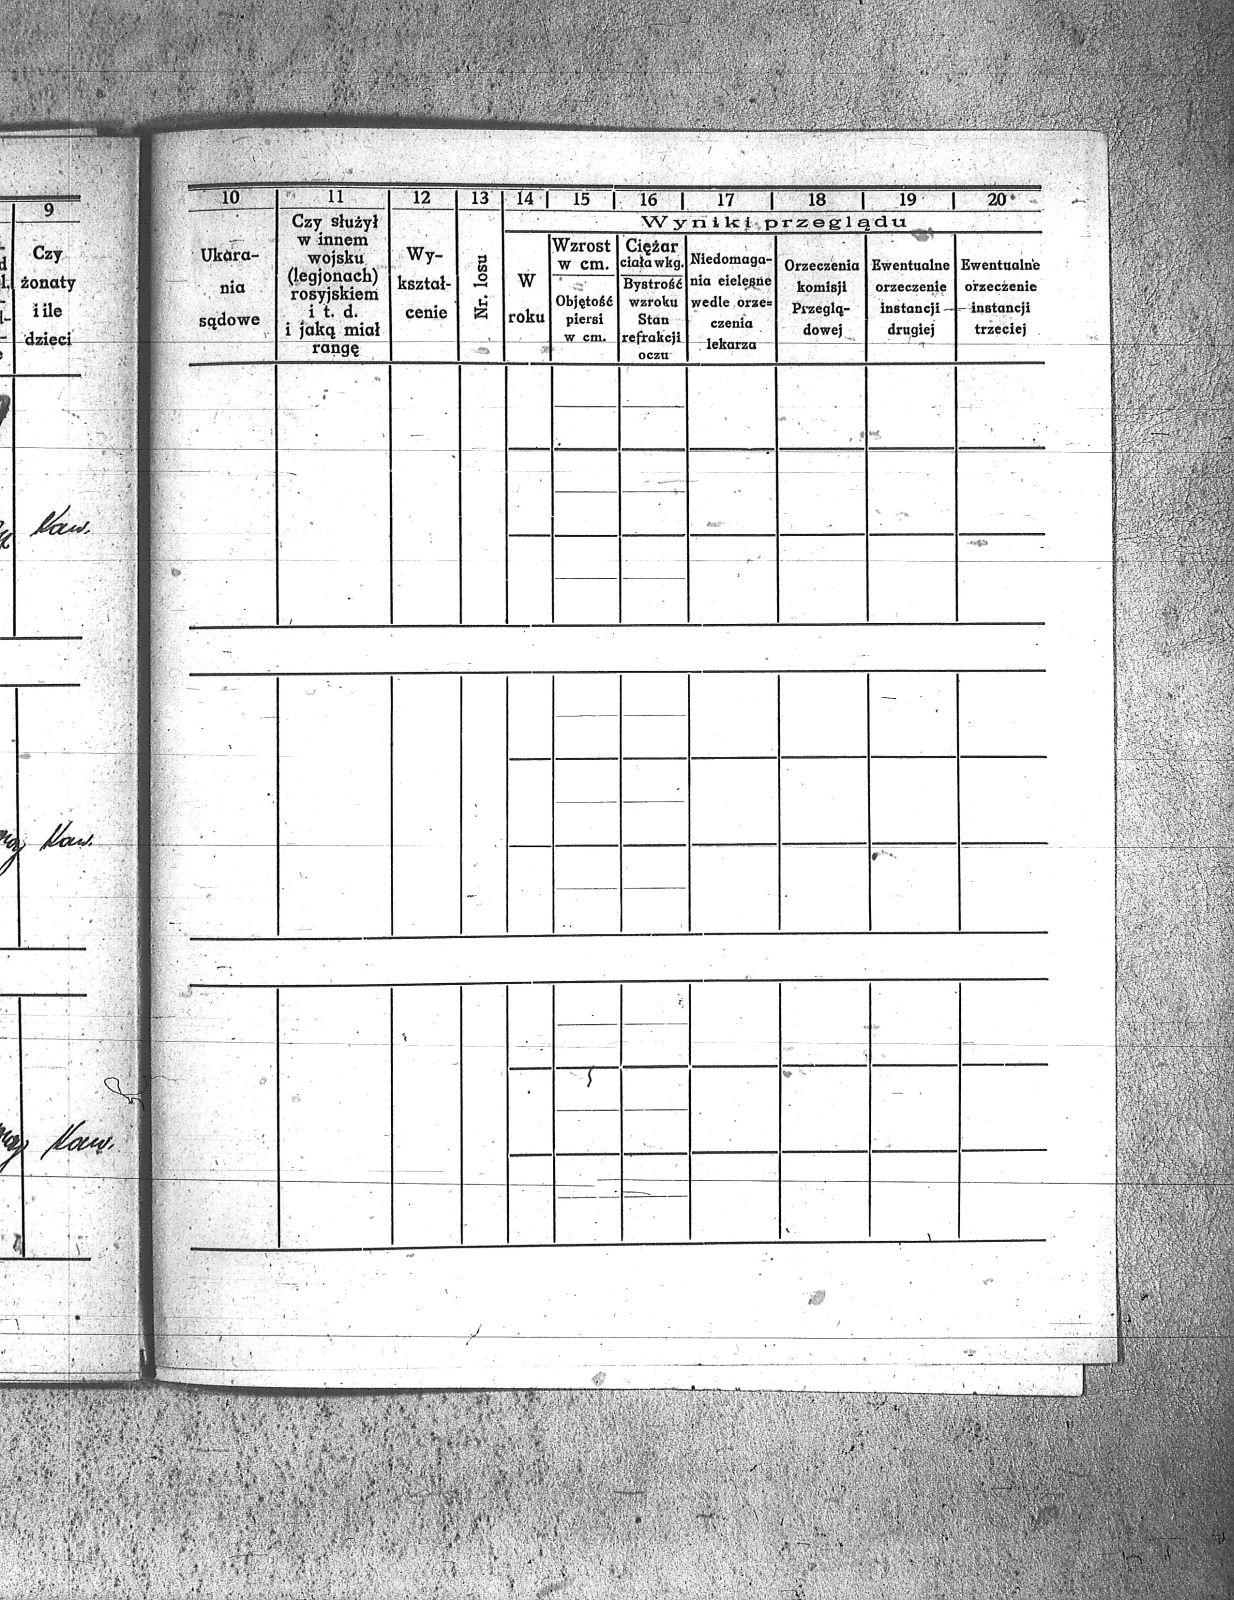 9
Czy
żonaty
i ile
dzieci
Kaw.
Kaw.
Kaw.
10 11 12 13 14 15 16 17 18 19 20
Wyniki przeglądu
Ukara-
nia
sądowe
Czy służył
w innem
wojsku
(legjonach)
rosyjskiem
i t. d.
i jaką miał
rangę
Wy-
kształ-
cenie
Nr. losu
W
roku
Wzrost
w cm.
Objętość
piersi
w cm.
Ciężar
ciała w kg.
Bystrość
wzroku
Stan
refrakcji
oczu
Niedomaga-
nia cielesne
wedle orze=
czenia
lekarza
Orzeczenia
komisji
Przeglą-
dowej
Ewentualne
orzeczenie
instancji
drugiej
Ewentualne
orzeczenie
instancji
trzeciej